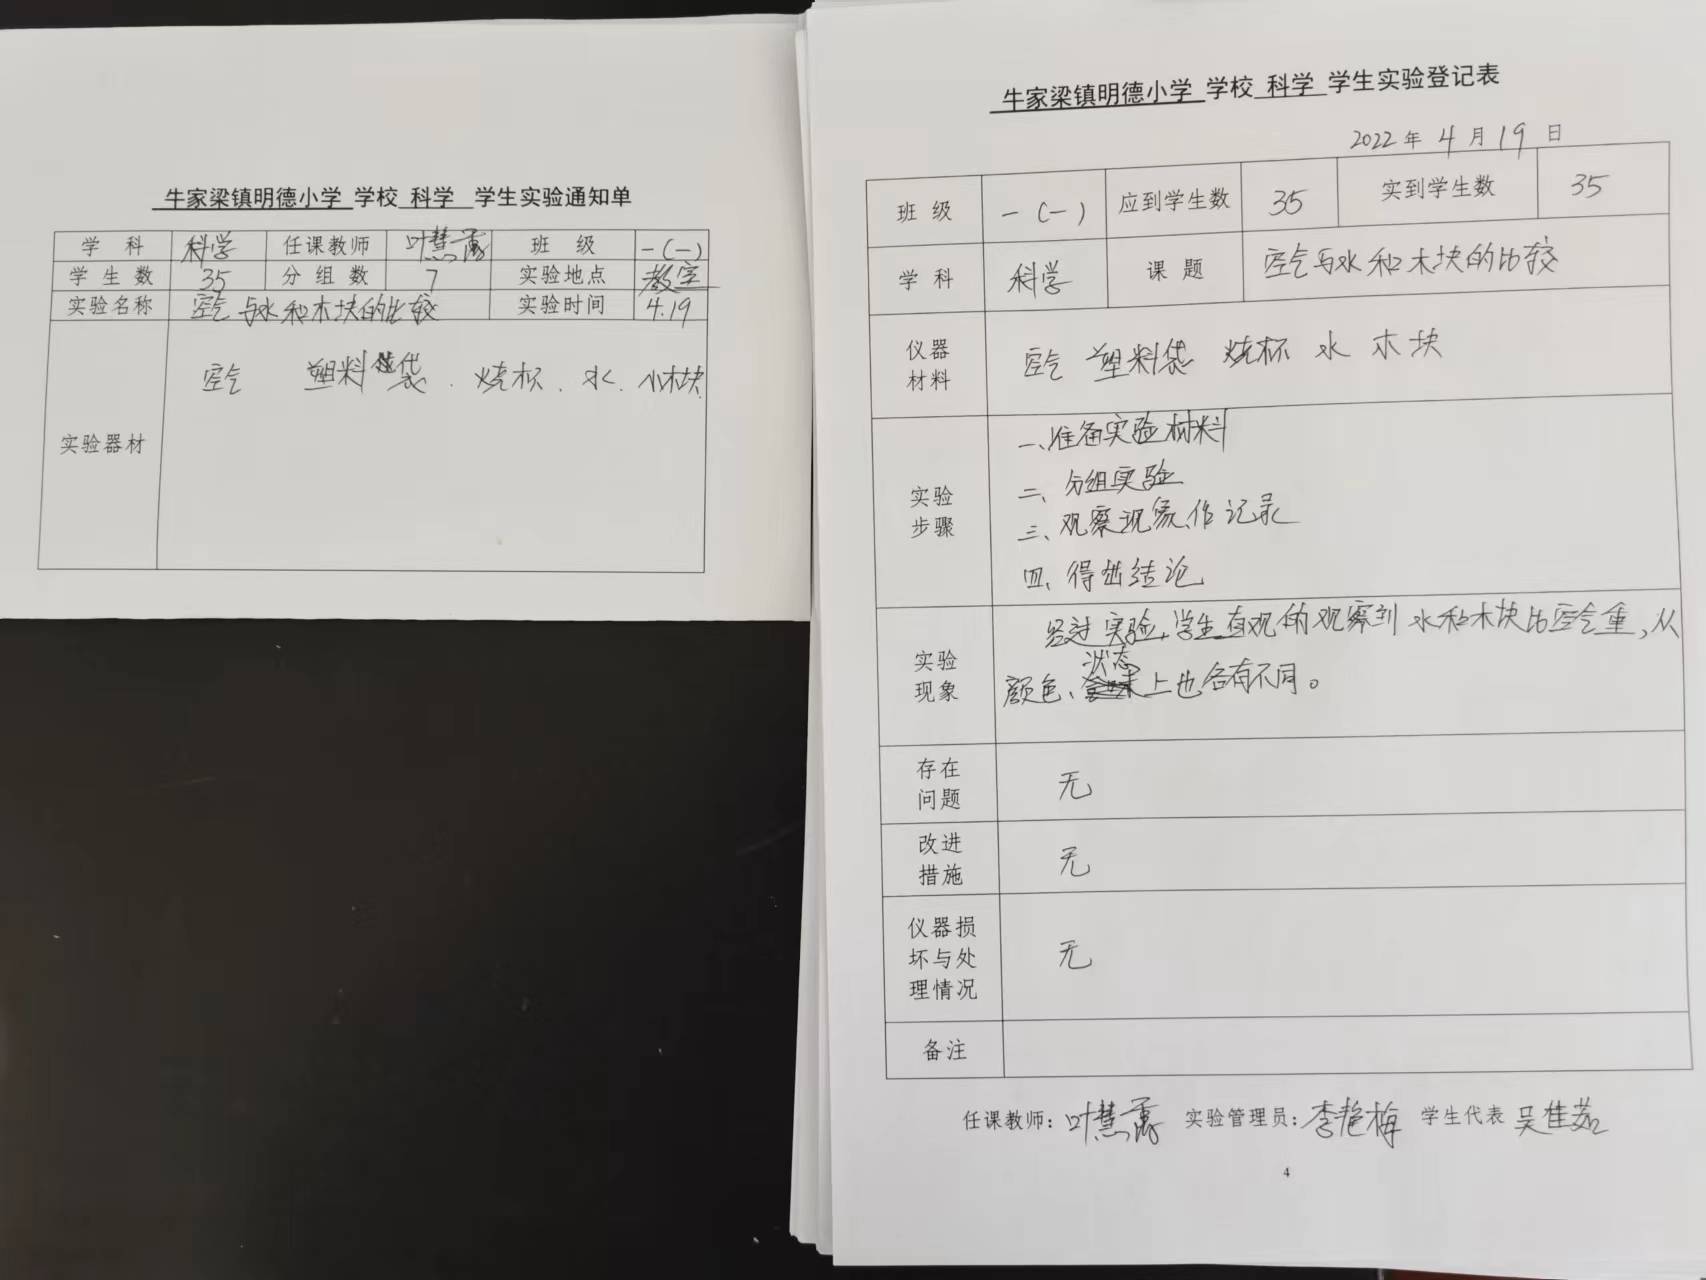 牛家梁镇明德小学 学校 科学 学生实验通知单
学 科 科学 任课教师 叶慧 班 级 一(一)
学生数 35 分组数 7 实验地点 教室
实验名称 空气与水和木块的比较 实验时间 4.19
实验器材
空气 塑料袋、烧杯、水、小木块
牛家梁镇明德小学 学校 科学 学生实验登记表
2022 年 4 月 19 日
班 级 一(一) 应到学生数 35 实到学生数 35
学 科 科学 课 题 空气与水和木块的比较
仪器
材料
空气 塑料袋 烧杯 水 木块
实验
步骤
一、准备实验材料
二、分组实验
三、观察现象、作记录
四、得出结论
实验
现象
经过实验,学生直观的观察到水和木块比空气重,从
颜色、状态上也各有不同。
存在
问题
无
改进
措施
无
仪器损
坏与处
理情况
无
备注
任课教师:叶慧 实验管理员:李艳梅 学生代表 吴佳茹
4